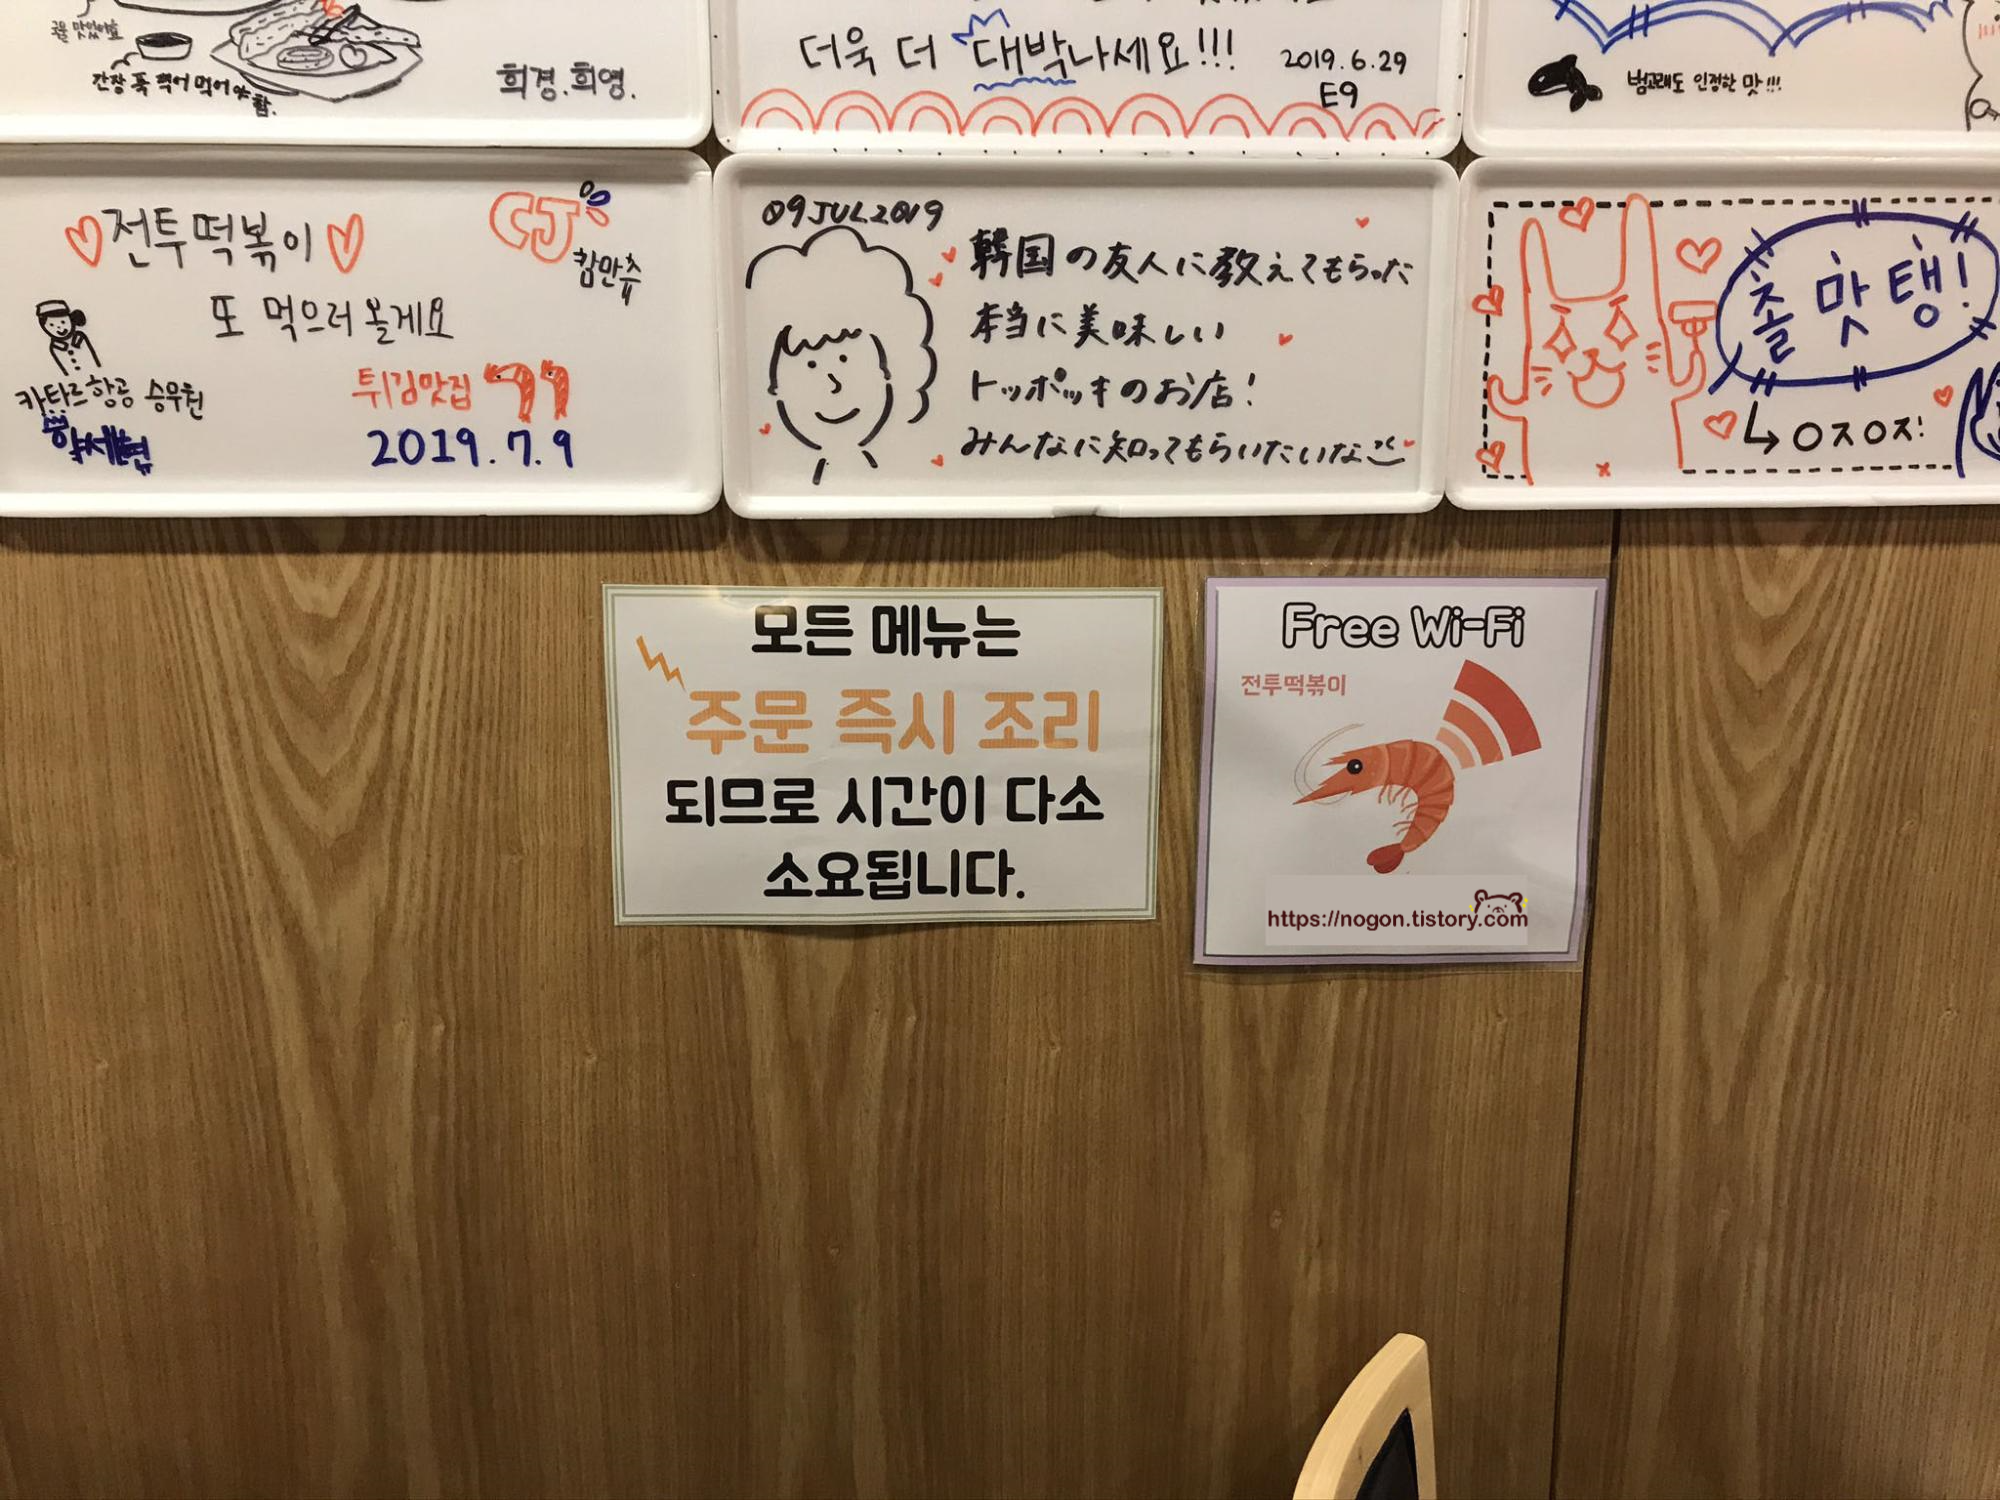 간장 푹 찍어 먹어야함.
희경.희영.
더욱 더 대박나세요!!!
2019.6.29
E9
범고래도 인정한 맛!!!
전투떡볶이
CJ
참만츄
또 먹으러 올게요
카타르항공 승무원
튀김맛집
2019.7.9
09JUL2019
韓国の友人に教えてもらった
本当に美味しい
トッポッキのお店!
みんなに知ってもらいたいな
졸맛탱!
ㅇㅈㅇㅈ!
모든 메뉴는
주문 즉시 조리
되므로 시간이 다소
소요됩니다.
Free Wi-Fi
전투떡볶이
https://nogon.tistory.com